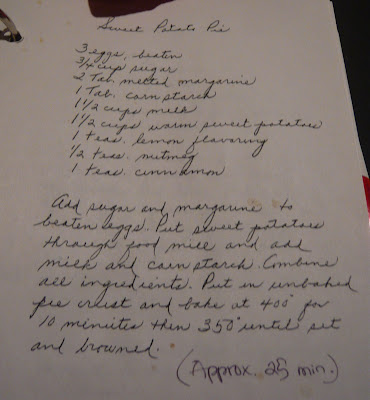 Sweet Potato Pie
3 eggs, beaten
3/4 cup sugar
2 Tab. melted margarine
1 Tab. corn starch
1 1/2 cups milk
1 1/2 cups warm sweet potatoes
1 teas. lemon flavoring
1/2 teas. nutmeg
1 teas. cinnamon
Add sugar and margarine to
beaten eggs. Put sweet potatoes
through food mill and add
milk and corn starch. Combine
all ingredients. Put in unbaked
pie crust and bake at 400° for
10 minutes then 350° until set
and browned.
(Approx. 25 min.)